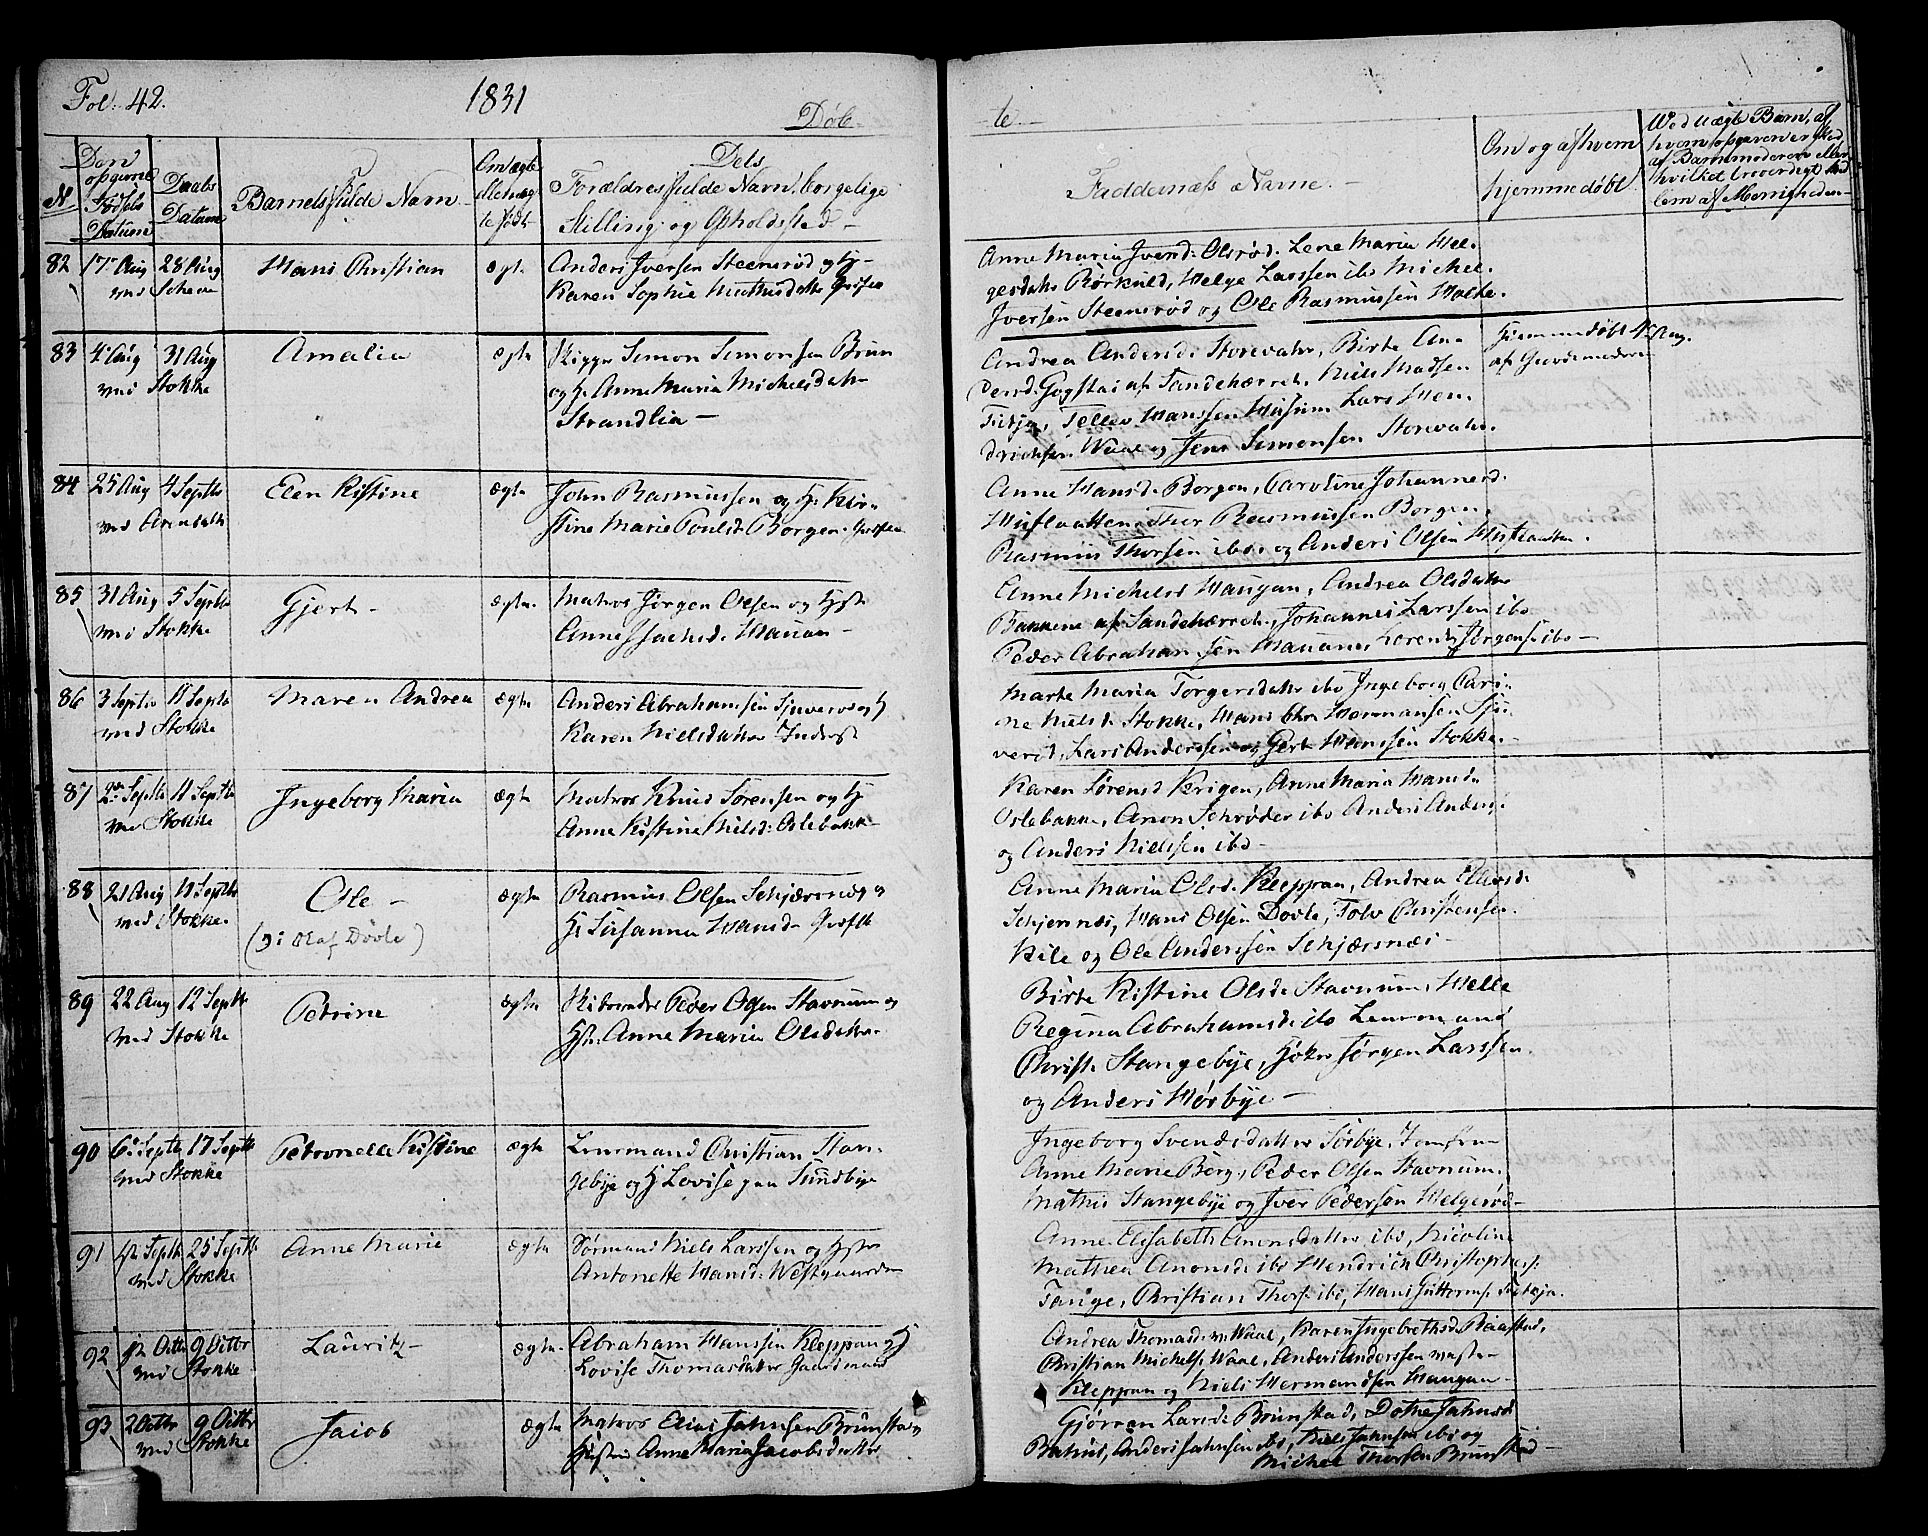 Fol. 42.
1831
Døb-
te.
Den opgivne Fødsels Datum
Daabs Datum
Barnets fulde Navn
Om ægte eller uægte født
Dets Forældres fulde Navn, borgelige Stilling og Opholdssted
Faddernes Navne.
Om og af hvem hjemmedøbt
82
17 Aug 28 Aug
Hans Christian
ægte
Anders Iversen Steensrød og H-
Karen Sophie Mathisdatter
Anne Maria Iversd. Olsrød. Lene Maria Hel-
gesdatter Rørkuld, Helge Larssen ibo Michel
Iversen Steensrød og Ole Rasmussen Holte.
83
4 Aug 31 Aug
ved Stokke
Amalia
ægte
Skipper Simon Simonsen Brun
og H. Anne Maria Michelsdatter
Strandlia-
Andrea Andersd. Storevahr, Birte An-
dersd. Gogstad af Sandeherred, Niels Madsen
Tellev Hanssen Husum Lars Hen-
drichsen Waae og Jens Simonsen Storevahr.
Hjemmedøbt 4 Aug.
af Giordemoderen
84
25 Aug 4 Septbr
Elen Kistine
ægte
John Rasmussen og H. Kir-
stine Marie Poulsd. Borgen.
Anne Hansd. Borgen, Caroline Johannesd.
Thor Rasmussen Borgen,
Rasmus Thorsen ibo og Anders Olsen
85
31 Aug 5 Septbr
ved Stokke
Gjert-
ægte
Matros Jørgen Olsen og Hst
Anne Isachsd. Hauan-
Anne Michelsd Haugan, Andrea Olsdatter
Bakkene af Sandeherred, Johannes Larssen ibo
Peder Abrahamsen Hauane, Lorents Jørgens. ibo-
86
3 Septbr 11 Septbr
ved Stokke
Maren Andrea
ægte
Anders Abrahamsen og H
Karen Nielsdatter
Marte Maria Torgersdatter ibo Ingeborg Cari-
ne Nielsd. Stokke, Hans Chr Hermansen
Lars Anderssen og Gert Hanssen Stokke.-
87
2 Septbr 11 Septbr
ved Stokke
Ingeborg Maria
ægte
Matros Knud Sørensen og H
Anne Kistine Nielsd. Oslebakke-
Karen Sørensd Krigen, Anne Maria Hansd.
Oslebakke, Anon Schrøder ibo Anders Anders.
og Anders Nielssen ibo-
88
21 Aug 11 Septbr
ved Stokke.
Ole-
(Olaf Dovle)
ægte
Rasmus Olsen Schjærsnæs og
H. Susanna Hansd.
Anne Maria Olsd. Kleppan, Andrea Ellevsd
Schjersnæs, Hans Olsen Dovle, Tolv Christensen
Kile og Ole Anderssen Schjærsnæs-
89
22 Aug 12 Septbr
ved Stokke
Petrine
ægte
Peder Olsen Stavnum og
Hst. Anne Maria Olsdatter
Birte Kistine Olsd. Stavnum, Helle
Regina Abrahamsd. ibo Leurmand
Christ. Stangebye, Jørgen Larssen
og Anders Hørbye-
90
6 Septbr 17 Septbr
ved Stokke
Petronelle Kistine
ægte
Leurmand Christian Stan-
gebye og H Lovise paa Sundbye
Ingeborg Svendsdatter Sørbye, Jomfru
Anne Marie Berg, Peder Olsen Stavnum
Mathis Stangebye og Iver Pedersen Helgerød-
91
12 Septbr 25 Septbr
ved Stokke
Anne Marie
ægte
Sørmand Niels Larssen og Hst
Antonette Hansd. Westgaarden
Anne Elisabeth Anonsdatter ibo, Nicoline
Mathea Anonsd ibo Hendrich Christophers.
Tange, Christian Thors. ibo, Hans Guttorms.
92
12 Octbr 9 Octbr
ved Stokke
Lauritz-
ægte
Abraham Hanssen Kleppan og H
Lovise Thomasdatter Gaardmand
Andrea Thomasd. Waae, Karen Ingebrethsd. Raastad,
Christian Michels. Waae, Anders Anderssen
Kleppan og Niels Hermandsen Haugan-
93
2 Octbr 9 Octbr
ved Stokke
Jacob
ægte
Matros Elias Jahnsen Brunstad
Hustru Anne Maria Jacobsdatter
Gjøren Larsd. Brunstad, Dothe Jahnsd
Anders Jahnsen ibo, Niels Jahnsen ibo og
Michel Thorsen Brunstad-